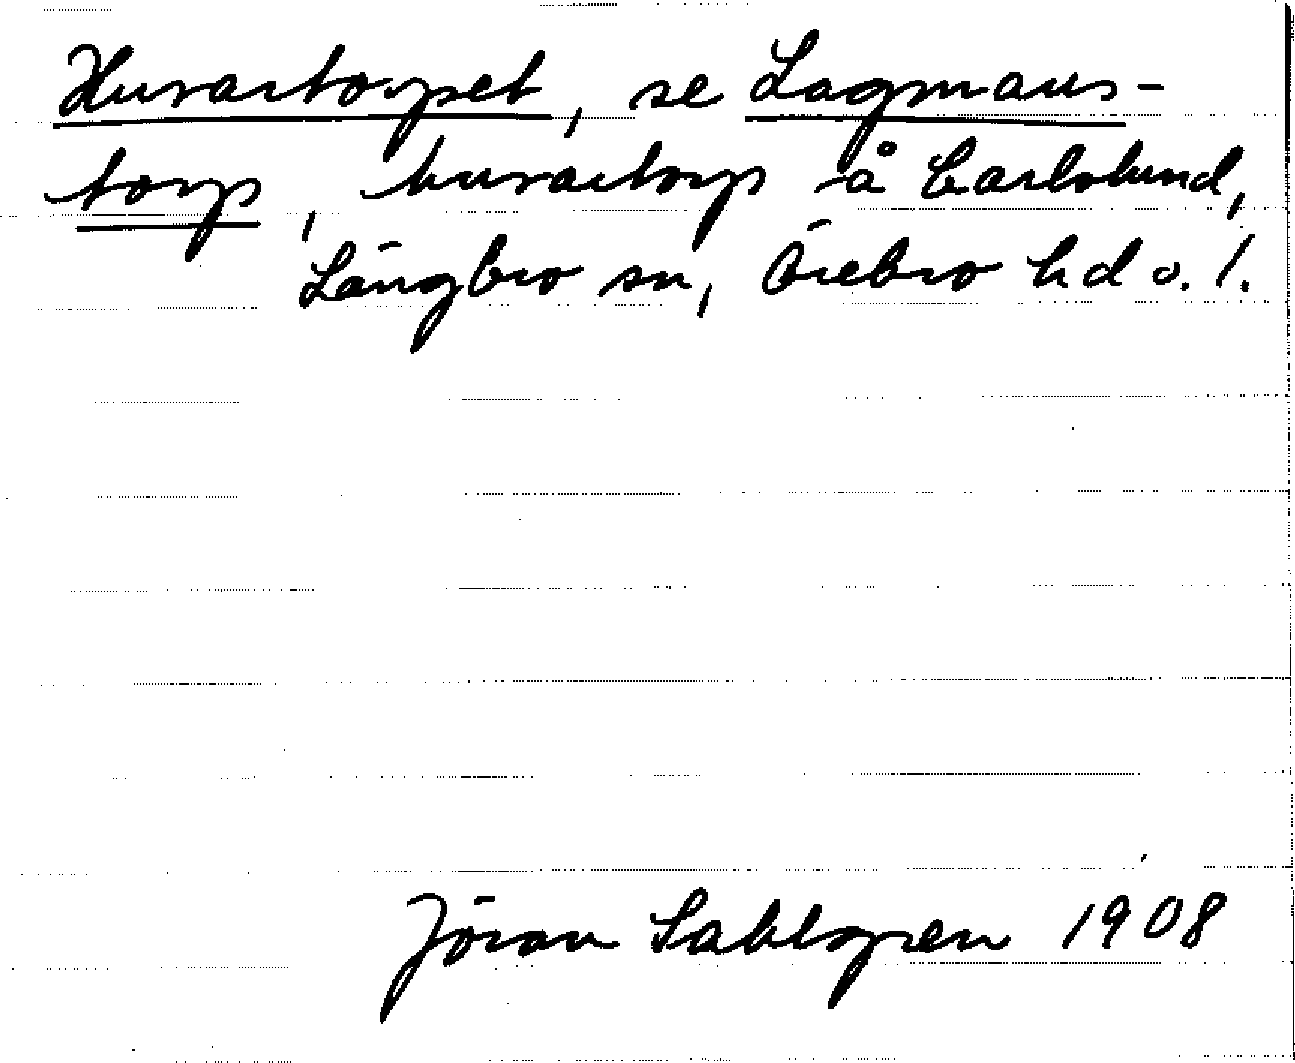 Hurartorpet, se Lagmans-
torp, hurartorp å Carlslund,
Längbro sn, Örebro hd o. l.
Jöran Sahlgren 1908